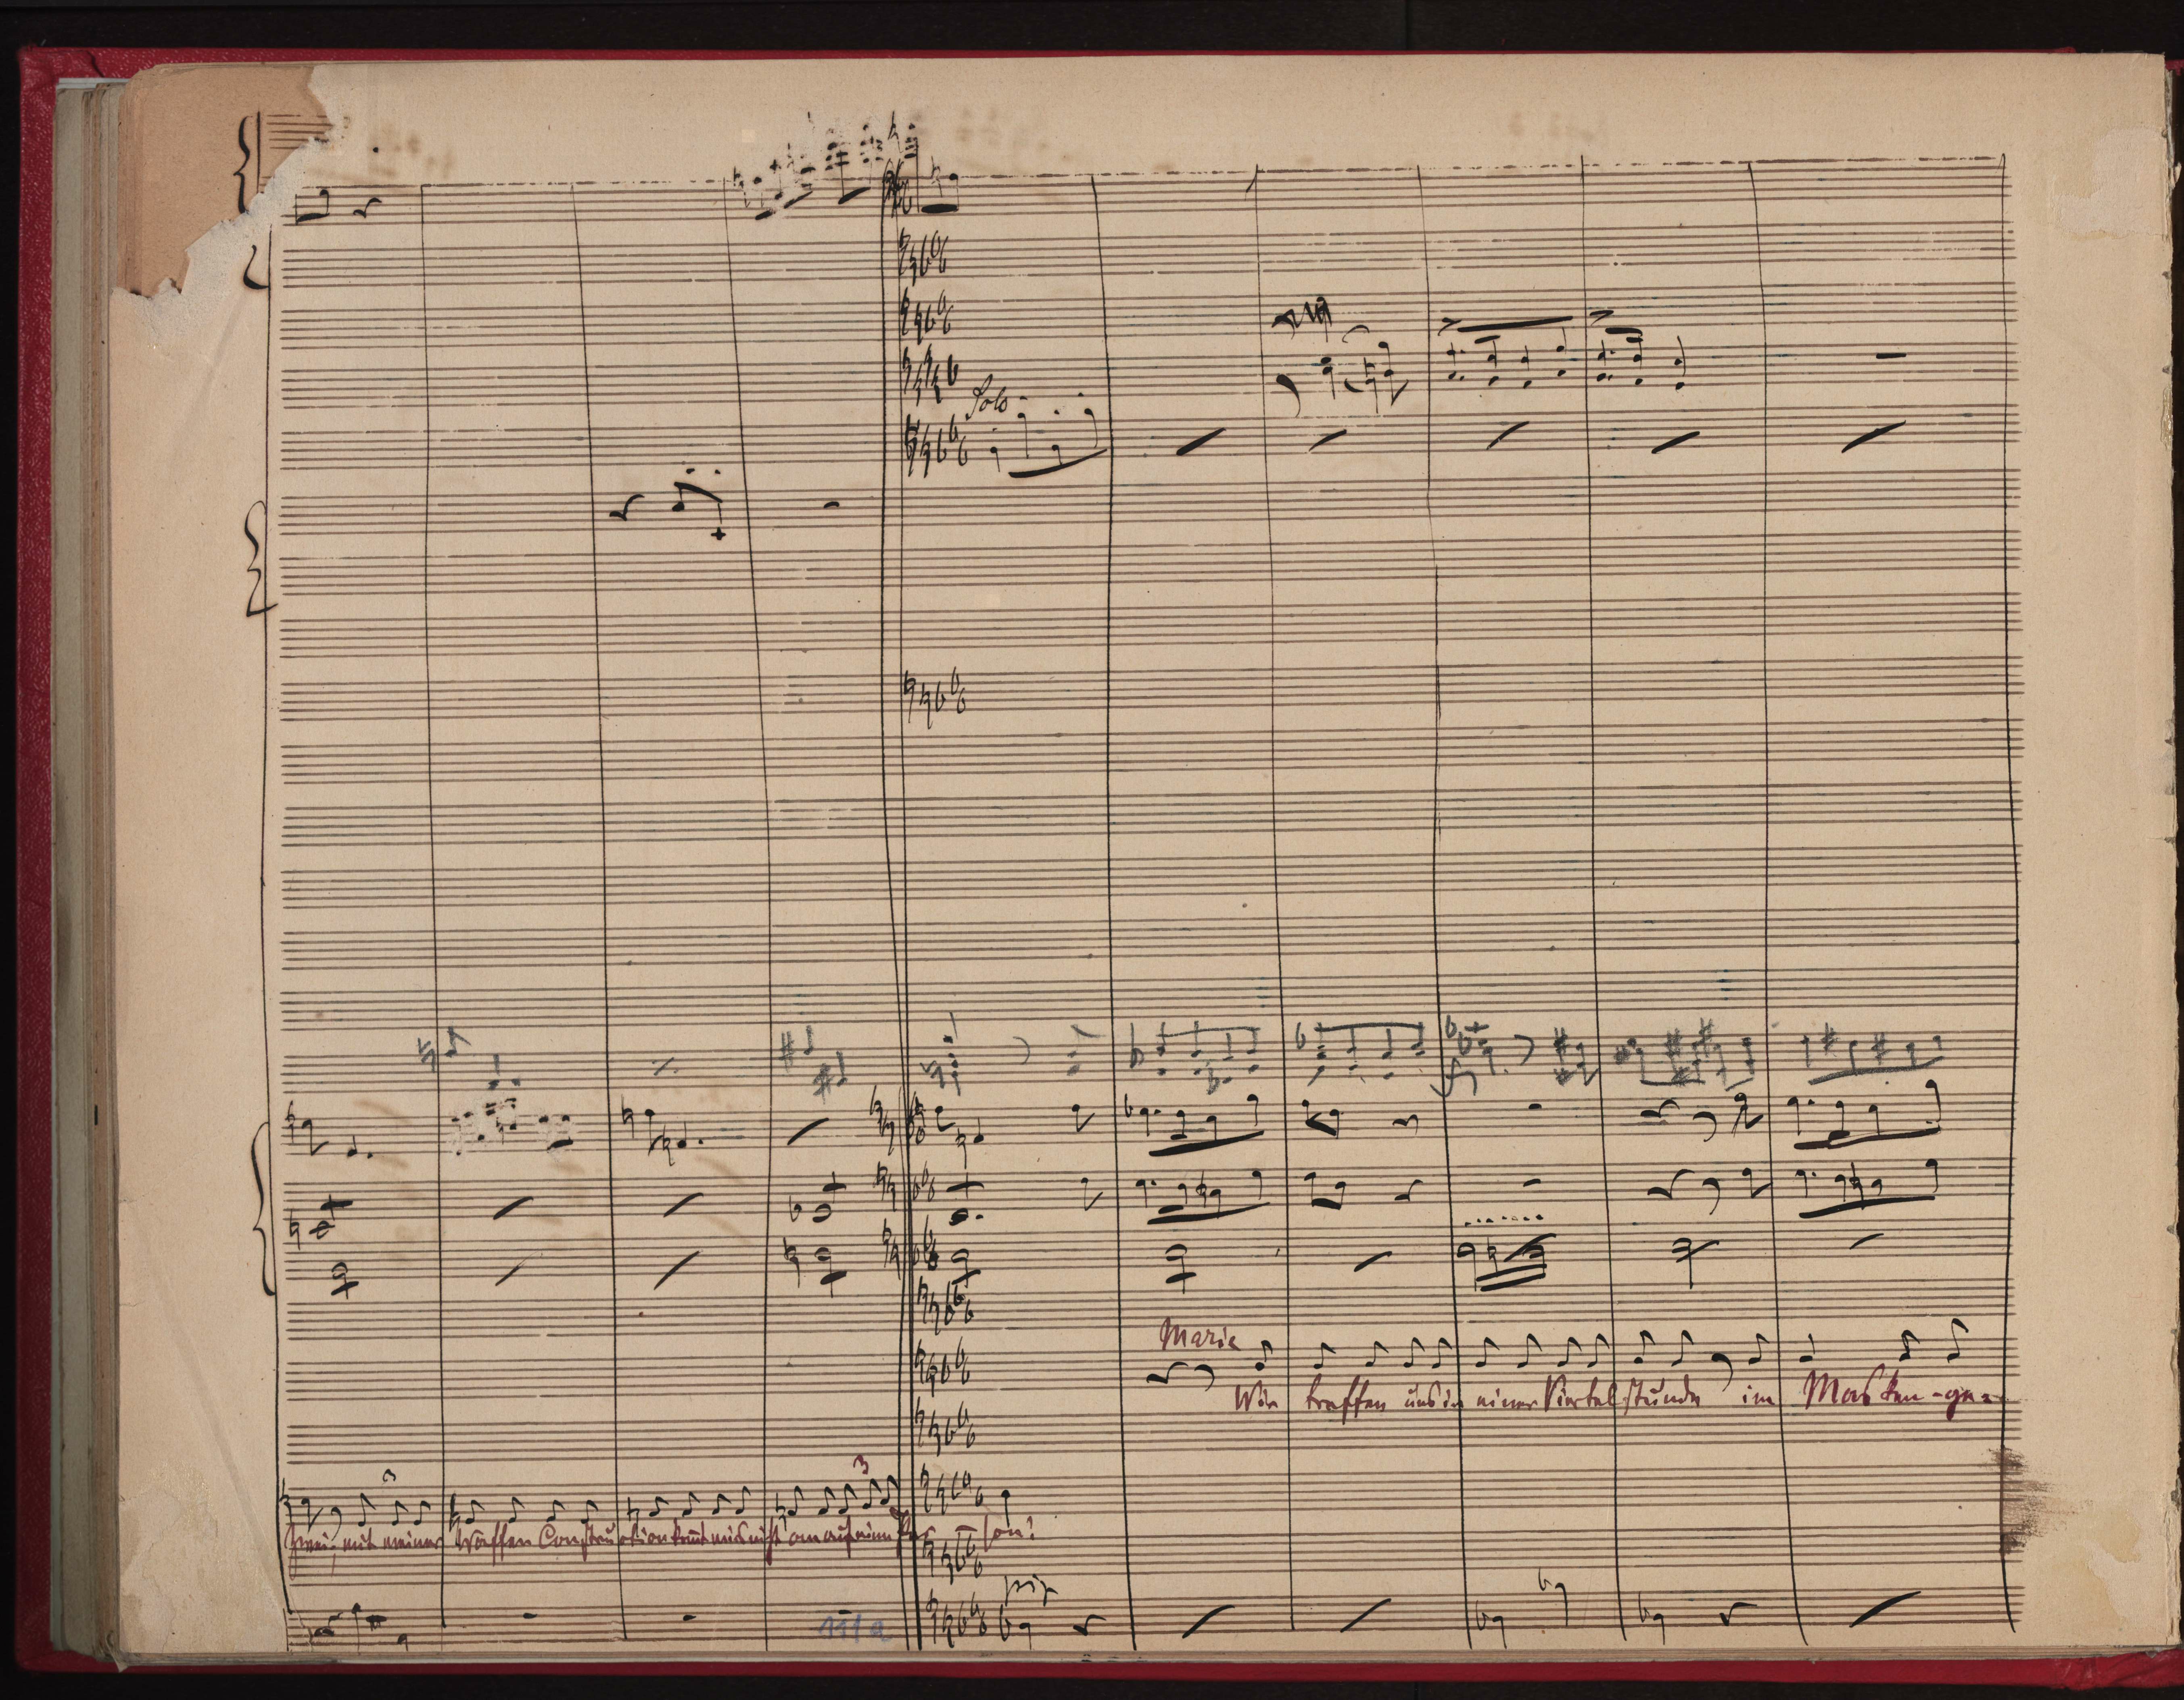 Solo
Marie
Wir treffen uns in einer Viertelstunde im Masken-ge=
3
Zwei, mit meiner Waffen Construktion kommt mirs nicht an auf einen
son!
pizz
111a